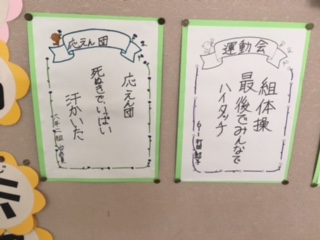 応えん団
応えん団
死ぬきで、いっぱい
汗かいた
運動会
組体操
最後でみんなで
ハイタッチ